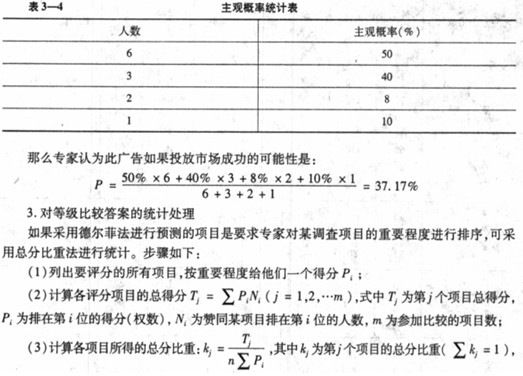 表3—4 主观概率统计表
人数 主观概率(%)
6 50
3 40
2 8
1 10
那么专家认为此广告如果投放市场成功的可能性是:
P = (50% ×6 + 40% ×3 + 8% ×2 + 10% ×1) / (6 + 3 + 2 + 1) = 37.17%
3. 对等级比较答案的统计处理
如果采用德尔菲法进行预测的项目是要求专家对某调查项目的重要程度进行排序,可采
用总分比重法进行统计。步骤如下:
(1)列出要评分的所有项目,按重要程度给他们一个得分 Pᵢ ;
(2)计算各评分项目的总得分 Tⱼ = ∑ PᵢNᵢ ( j = 1,2,⋯m ),式中 Tⱼ 为第 j 个项目总得分,
Pᵢ 为排在第 i 位的得分(权数), Nᵢ 为赞同某项目排在第 i 位的人数, m 为参加比较的项目数;
(3)计算各项目所得的总分比重: kⱼ = Tⱼ / (n∑Pᵢ) ,其中 kⱼ 为第 j 个项目的总分比重( ∑ kⱼ = 1 ),